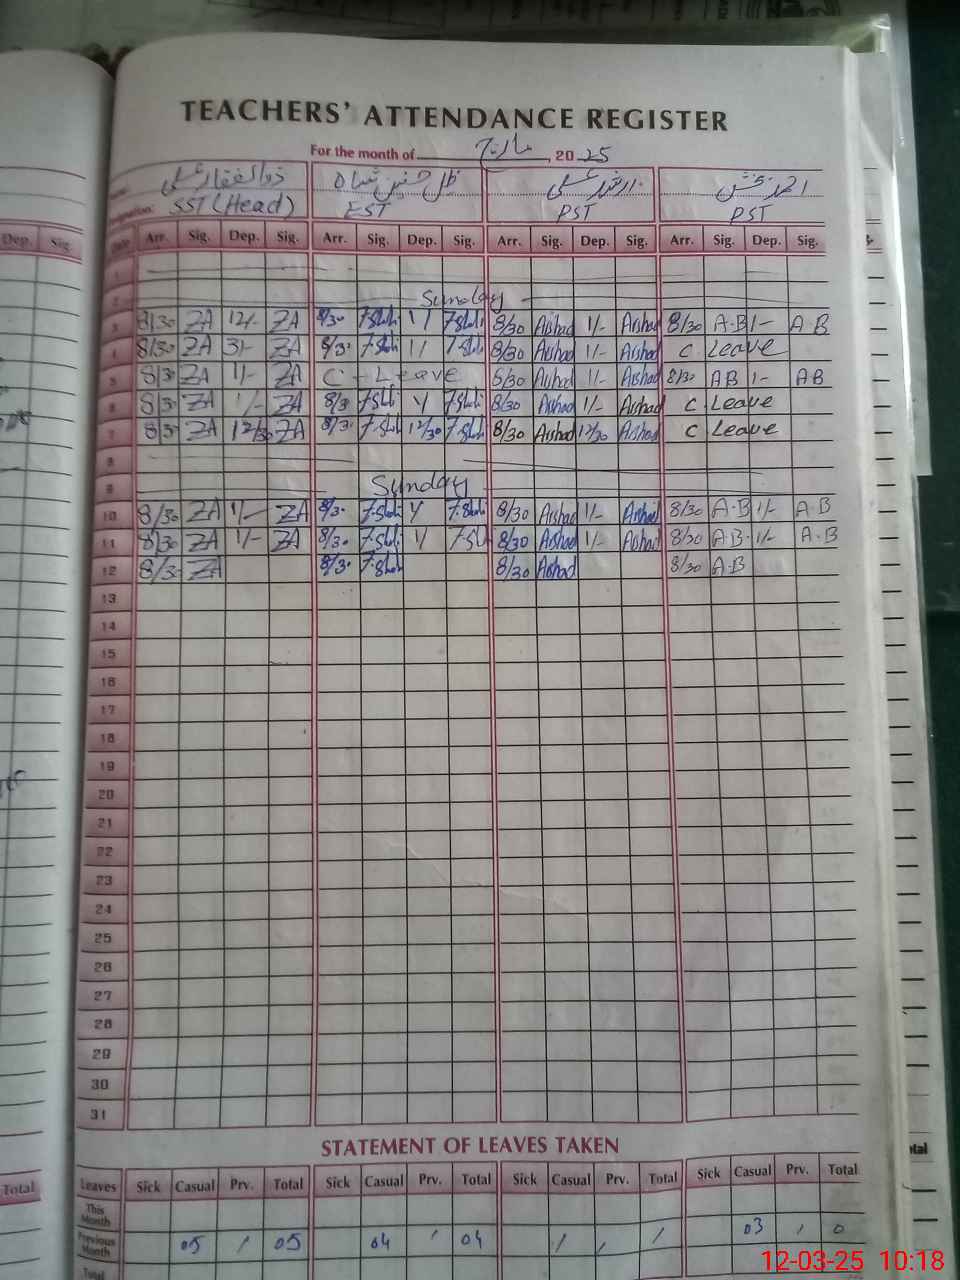 TEACHERS' ATTENDANCE REGISTER
For the month of مارچ, 2025
ذوالفقار علی ظل حسنین شاہ ارشد علی
SST (Head) EST PST PST
Dep. Sig. Date Arr. Sig. Dep. Sig. Arr. Sig. Dep. Sig. Arr. Sig. Dep. Sig. Arr. Sig. Dep. Sig.
1
2 Sunday
3 8/30 ZA 12/- ZA 8/30 8/30 Arshad 1/- Arshad 8/30 A.B 1/- A.B
4 8/30 ZA 3/- ZA 8/3. 8/30 Arshad 1/- Arshad C. Leave
5 8/3. ZA 1/- ZA C - Leave 8/30 Arshad 1/- Arshad 8/30 AB 1- AB
6 8/3. ZA 1/- ZA 8/3. 8/30 Arshad 1/- Arshad C. Leave
7 8/3. ZA 12/30 ZA 8/3. 12/30 8/30 Arshad 12/30 Arshad C Leave
8
9 Sunday
10 8/30 ZA 1/- ZA 8/3. 8/30 Arshad 1/- Arshad 8/30 A.B 1/- A.B
11 8/30 ZA 1/- ZA 8/3. 8/30 Arshad 1/- Arshad 8/30 A.B. 1/- A.B
12 8/3. ZA 8/3. 8/30 Arshad 8/30 A.B
13
14
15
16
17
18
19
20
21
22
23
24
25
26
27
28
29
30
31
STATEMENT OF LEAVES TAKEN
Total Leaves Sick Casual Prv. Total Sick Casual Prv. Total Sick Casual Prv. Total Sick Casual Prv. Total
This Month
Previous Month 05 / 05 04 / 04 / / / 03 / 0
Total
12-03-25 10:18